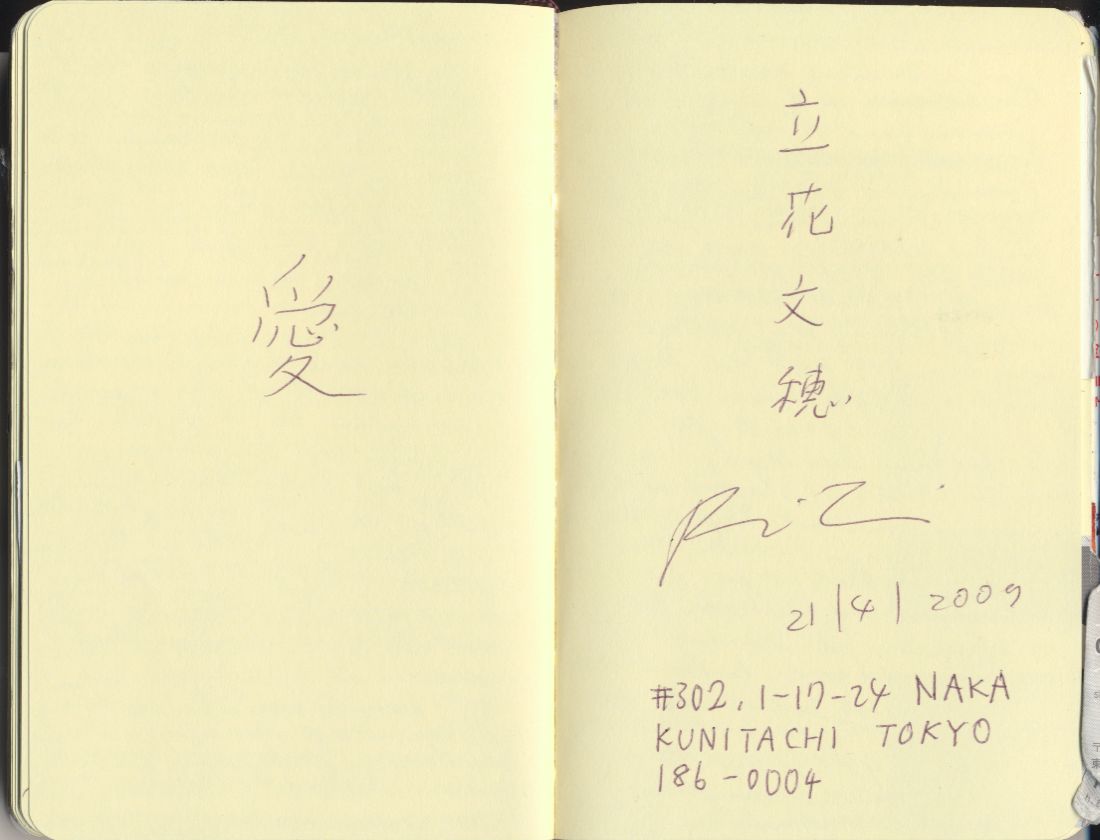 愛
立花文穂
21/4/2009
#302, 1-17-24 NAKA
KUNITACHI TOKYO
186-0004